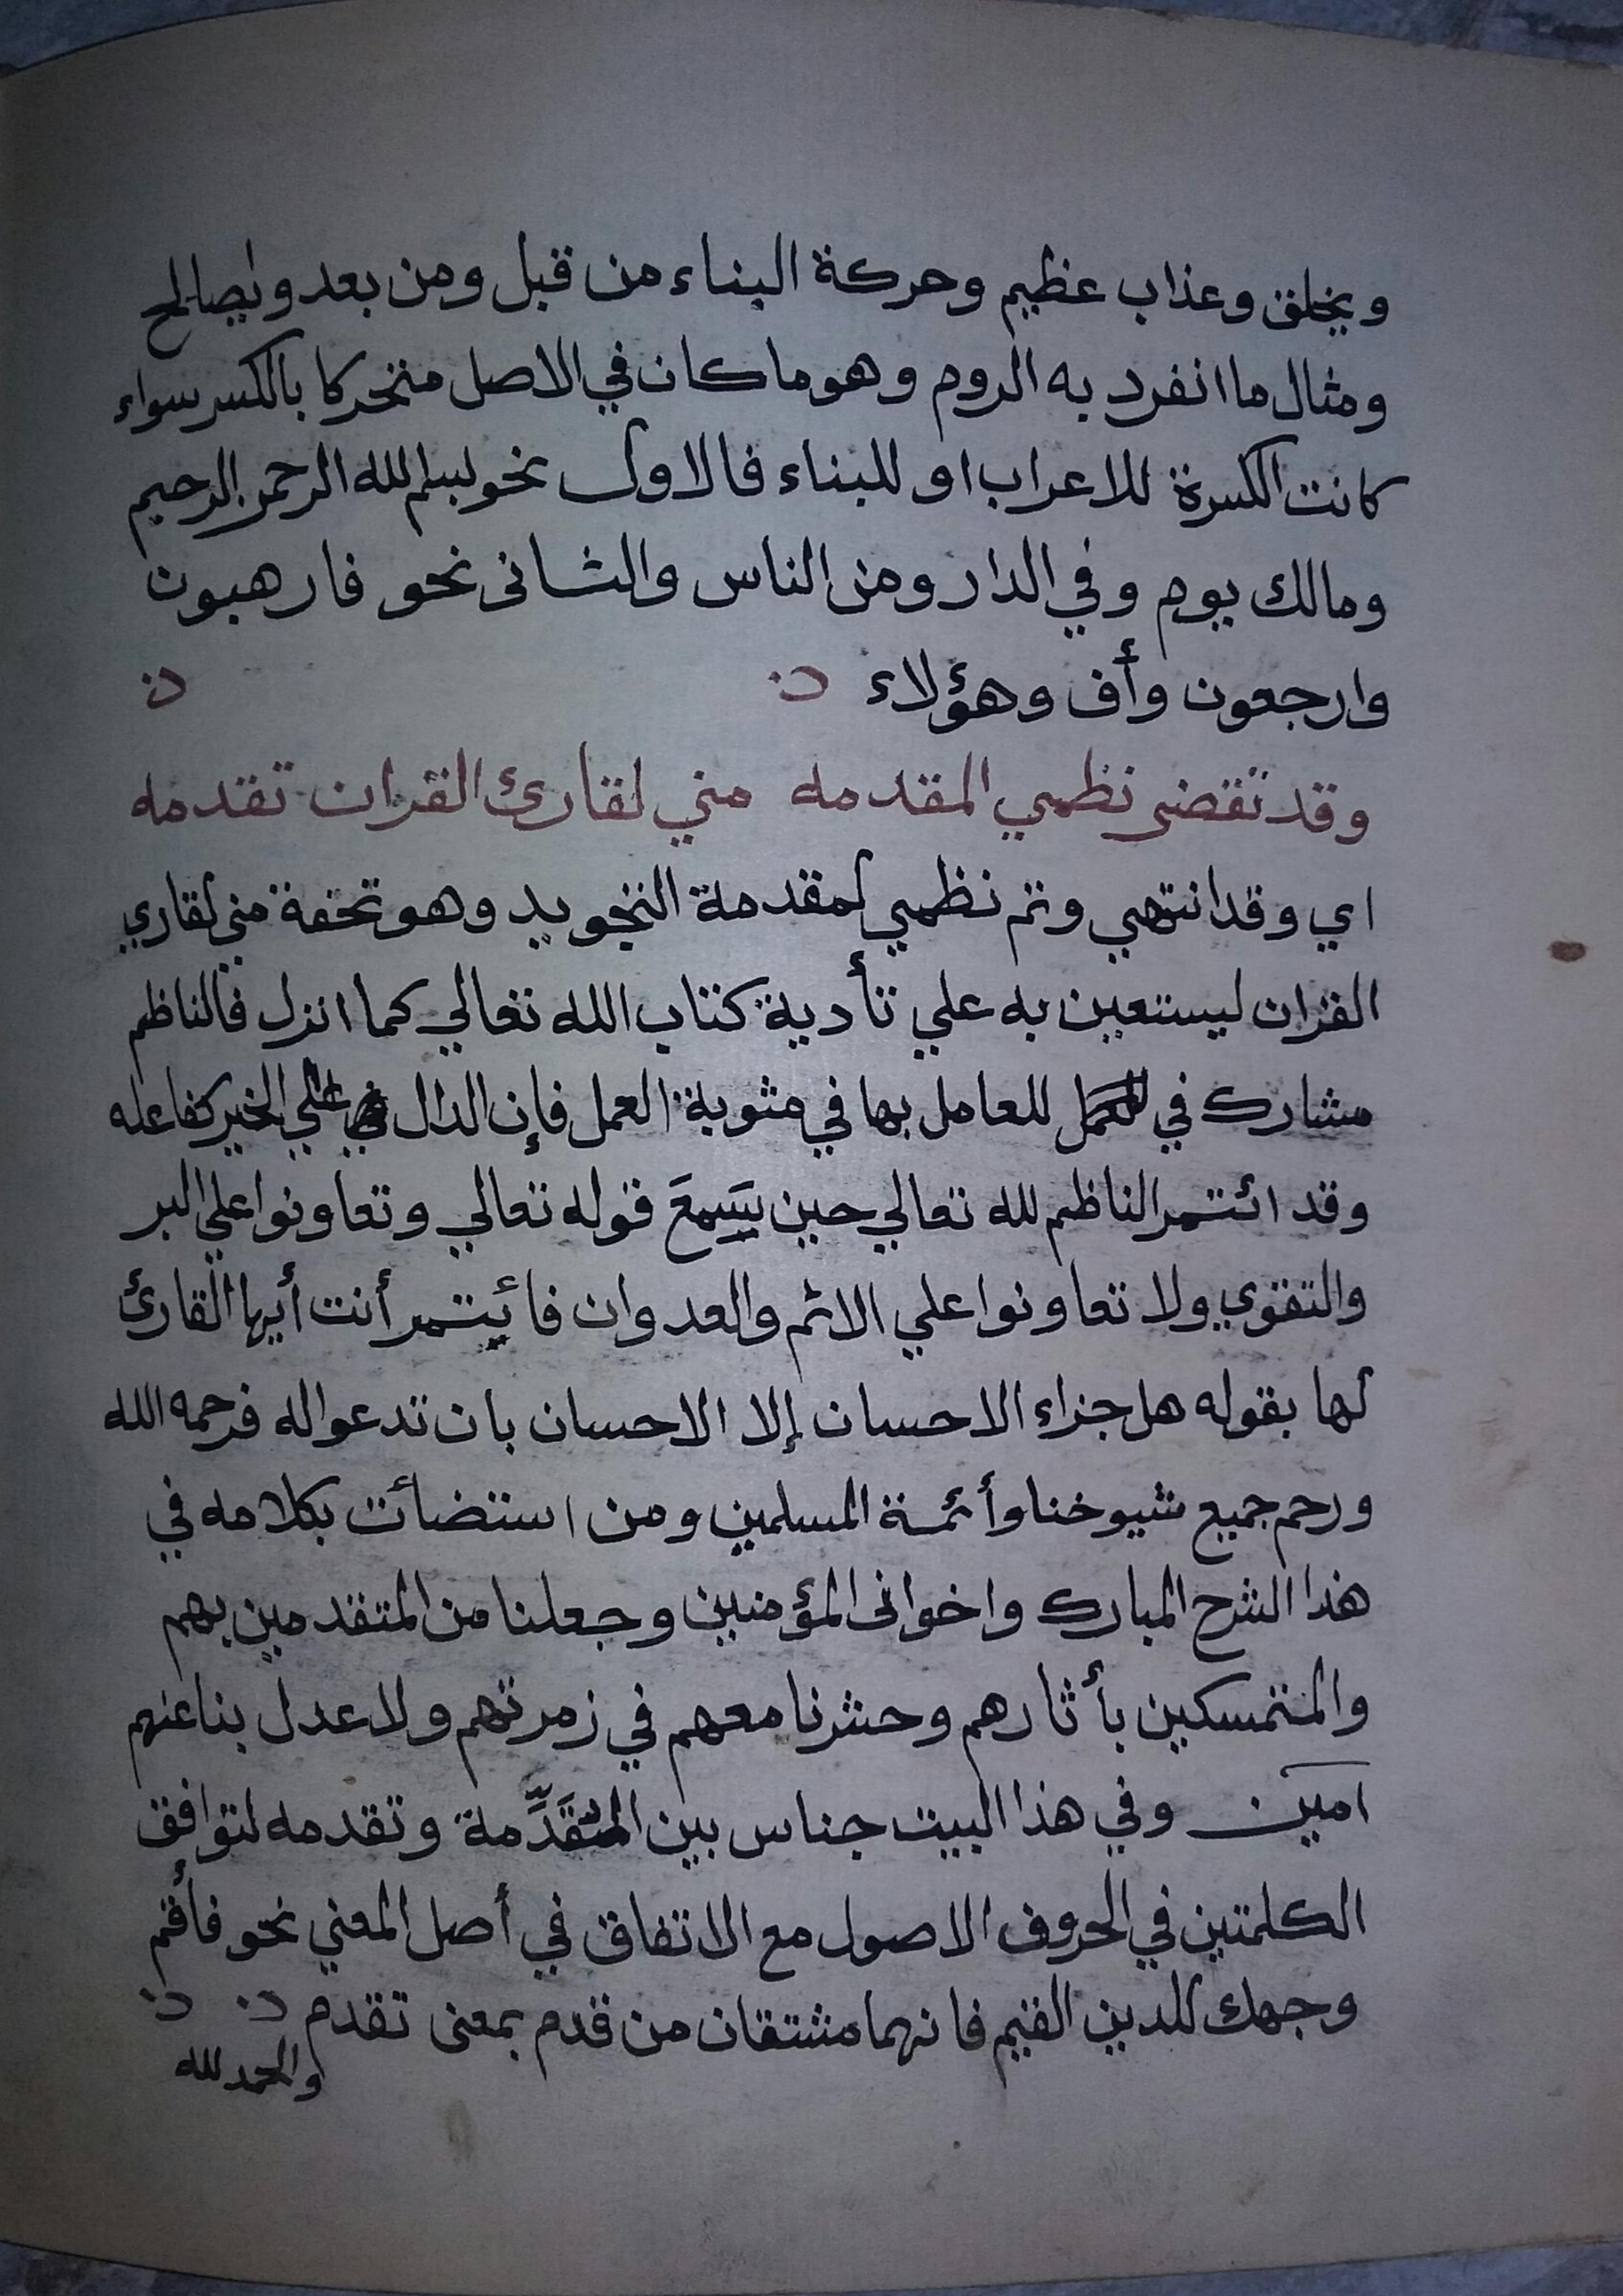 ويخلق وعذاب عظيم وحركة البناء من قبل ومن بعد ويصالح
ومثال ما انفرد به الروم وهو ما كان في الاصل متحركا بالكسر سواء
كانت الكسرة للاعراب او للبناء فالاول نحو بسم الله الرحمن الرحيم
ومالك يوم وفي الدار ومن الناس والثانى نحو فارهبون
وارجعون وأف وهؤلاء
وقد تقضى نظمي المقدمه مني لقارئ القران تقدمه
اي وقد انتهي وتم نظمي لمقدمة التجويد وهو تحفة مني لقاري
القران ليستعين به علي تأدية كتاب الله تعالي كما انزل فالناظم
مشارك في للعامل بها في مثوبة العمل فإن الدال علي الخير كفاعله
وقد ائتمر الناظم لله تعالي حين يسَمعَ قوله تعالي وتعاونوا علي البر
والتقوي ولا تعاونوا علي الاثم والعدوان فائيتمر أنت أيها القارئ
لها بقوله هل جزاء الاحسان إلا الاحسان بان تدعوا له فرحمه الله
ورحم جميع شيوخنا وأئمة المسلمين ومن استضأت بكلامه في
هذا الشرح المبارك واخوانى المؤمنين وجعلنا من المتقدمين بهم
والمتمسكين بأثارهم وحشرنا معهم في زمرتهم ولا عدل بنا عنهم
آمين وفي هذا البيت جناس بين المقَدِّمة وتقدمه لتوافق
الكلمتين في الحروف الاصول مع الاتفاق في أصل المعني نحو فأقم
وجهك للدين القيم فانهما مشتقان من قدم بمعنى تقدم
والحمد لله